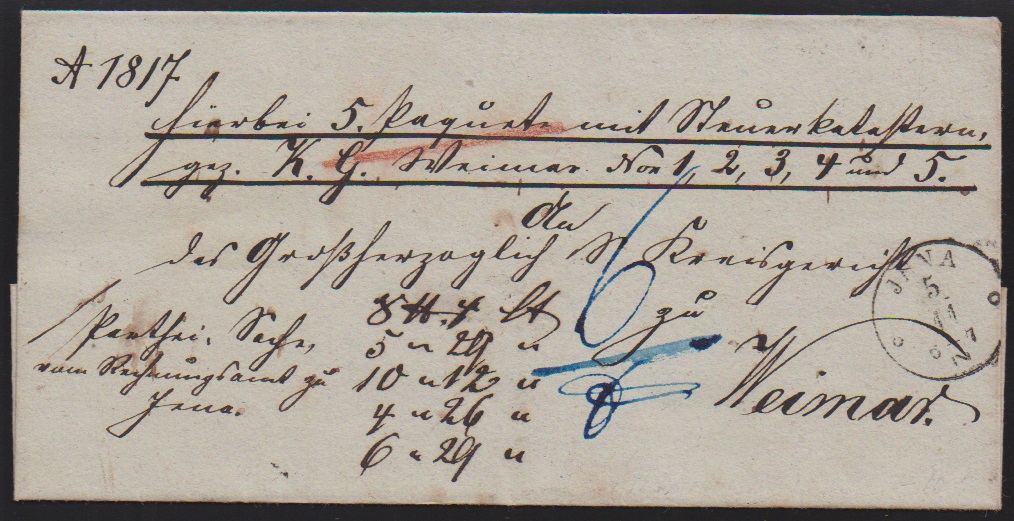 A 1817
hierbei 5. Paquete mit Steuerkatastern,
gez. K. G. Weimar Nor 1, 2, 3, 4 und 5.
An
das Großherzoglich S. Kreisgericht
zu
Weimar.
Parthei. Sache,
vom Rechnungsamt zu
Jena.
8 ℔. 4 lt
5 " 29 "
10 " 12 "
4 " 26 "
6 " 29 "
6
8
JENA
5
11